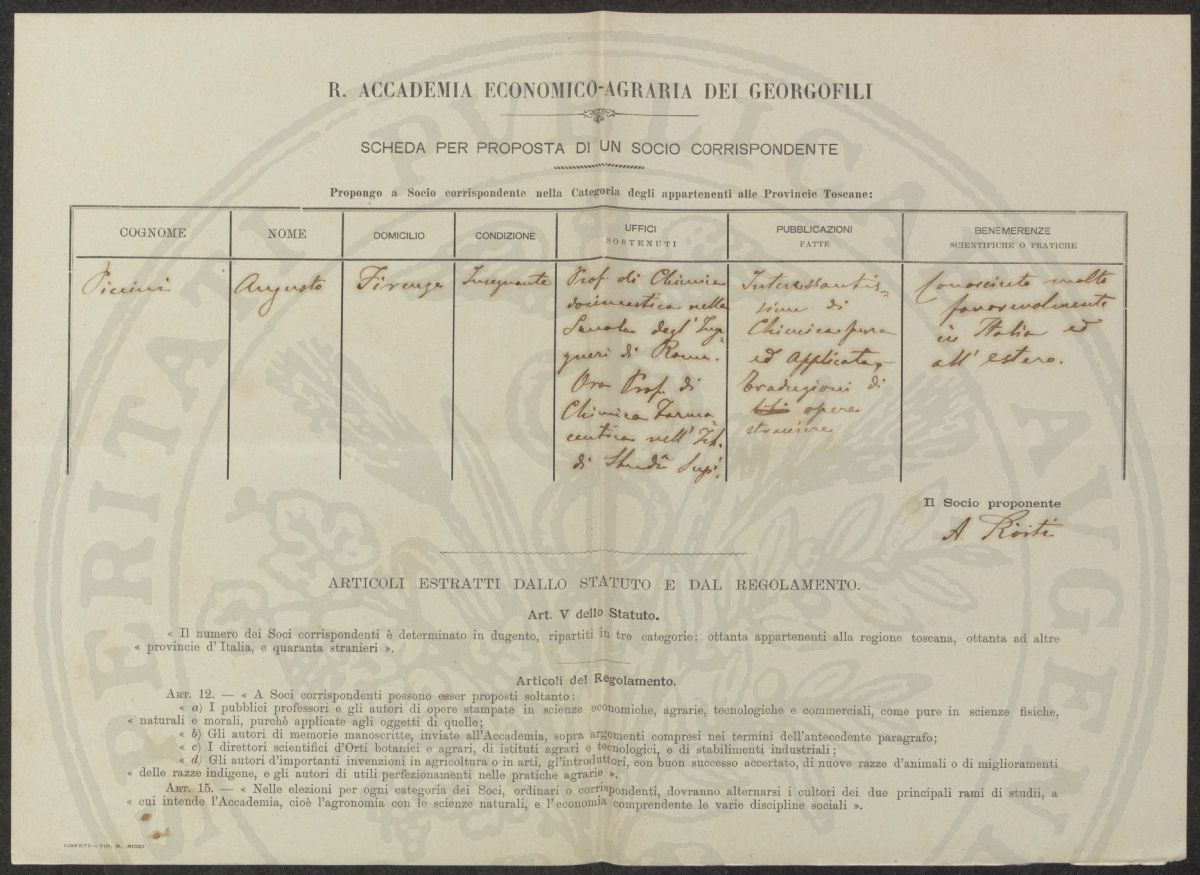 R. ACCADEMIA ECONOMICO-AGRARIA DEI GEORGOFILI
SCHEDA PER PROPOSTA DI UN SOCIO CORRISPONDENTE
Propongo a Socio corrispondente nella Categoria degli appartenenti alle Provincie Toscane:
COGNOME
NOME
DOMICILIO
CONDIZIONE
UFFICI
SOSTENUTI
PUBBLICAZIONI
FATTE
BENEMERENZE
SCIENTIFICHE O PRATICHE
Piccini
Augusto
Firenze
Insegnante
Prof. di Chimica
docimastica nella
Scuola degl' Inge
gneri di Roma.
Ora Prof. di
Chimica Farma
ceutica nell' Ist.
di Studi Sup.
Interessantis-
sime di
Chimica pura
ed applicata,
traduzioni di
opere
straniere
Conosciuto molto
favorevolmente
in Italia ed
all' estero.
Il Socio proponente
A Ròiti
ARTICOLI ESTRATTI DALLO STATUTO E DAL REGOLAMENTO.
Art. V dello Statuto.
« Il numero dei Soci corrispondenti è determinato in dugento, ripartiti in tre categorie: ottanta appartenenti alla regione toscana, ottanta ad altre
« provincie d'Italia, e quaranta stranieri ».
Articoli del Regolamento.
ART. 12. — « A Soci corrispondenti possono esser proposti soltanto:
« a) I pubblici professori e gli autori di opere stampate in scienze economiche, agrarie, tecnologiche e commerciali, come pure in scienze fisiche,
« naturali e morali, purchè applicate agli oggetti di quelle;
« b) Gli autori di memorie manoscritte, inviate all'Accademia, sopra argomenti compresi nei termini dell'antecedente paragrafo;
« c) I direttori scientifici d'Orti botanici e agrari, di istituti agrari e tecnologici, e di stabilimenti industriali;
« d) Gli autori d'importanti invenzioni in agricoltura o in arti, gl'introduttori, con buon successo accertato, di nuove razze d'animali o di miglioramenti
« delle razze indigene, e gli autori di utili perfezionamenti nelle pratiche agrarie ».
ART. 15. — « Nelle elezioni per ogni categoria dei Soci, ordinari o corrispondenti, dovranno alternarsi i cultori dei due principali rami di studii, a
« cui intende l'Accademia, cioè l'agronomia con le scienze naturali, e l'economia comprendente le varie discipline sociali ».
FIRENZE – TIP. M. RICCI